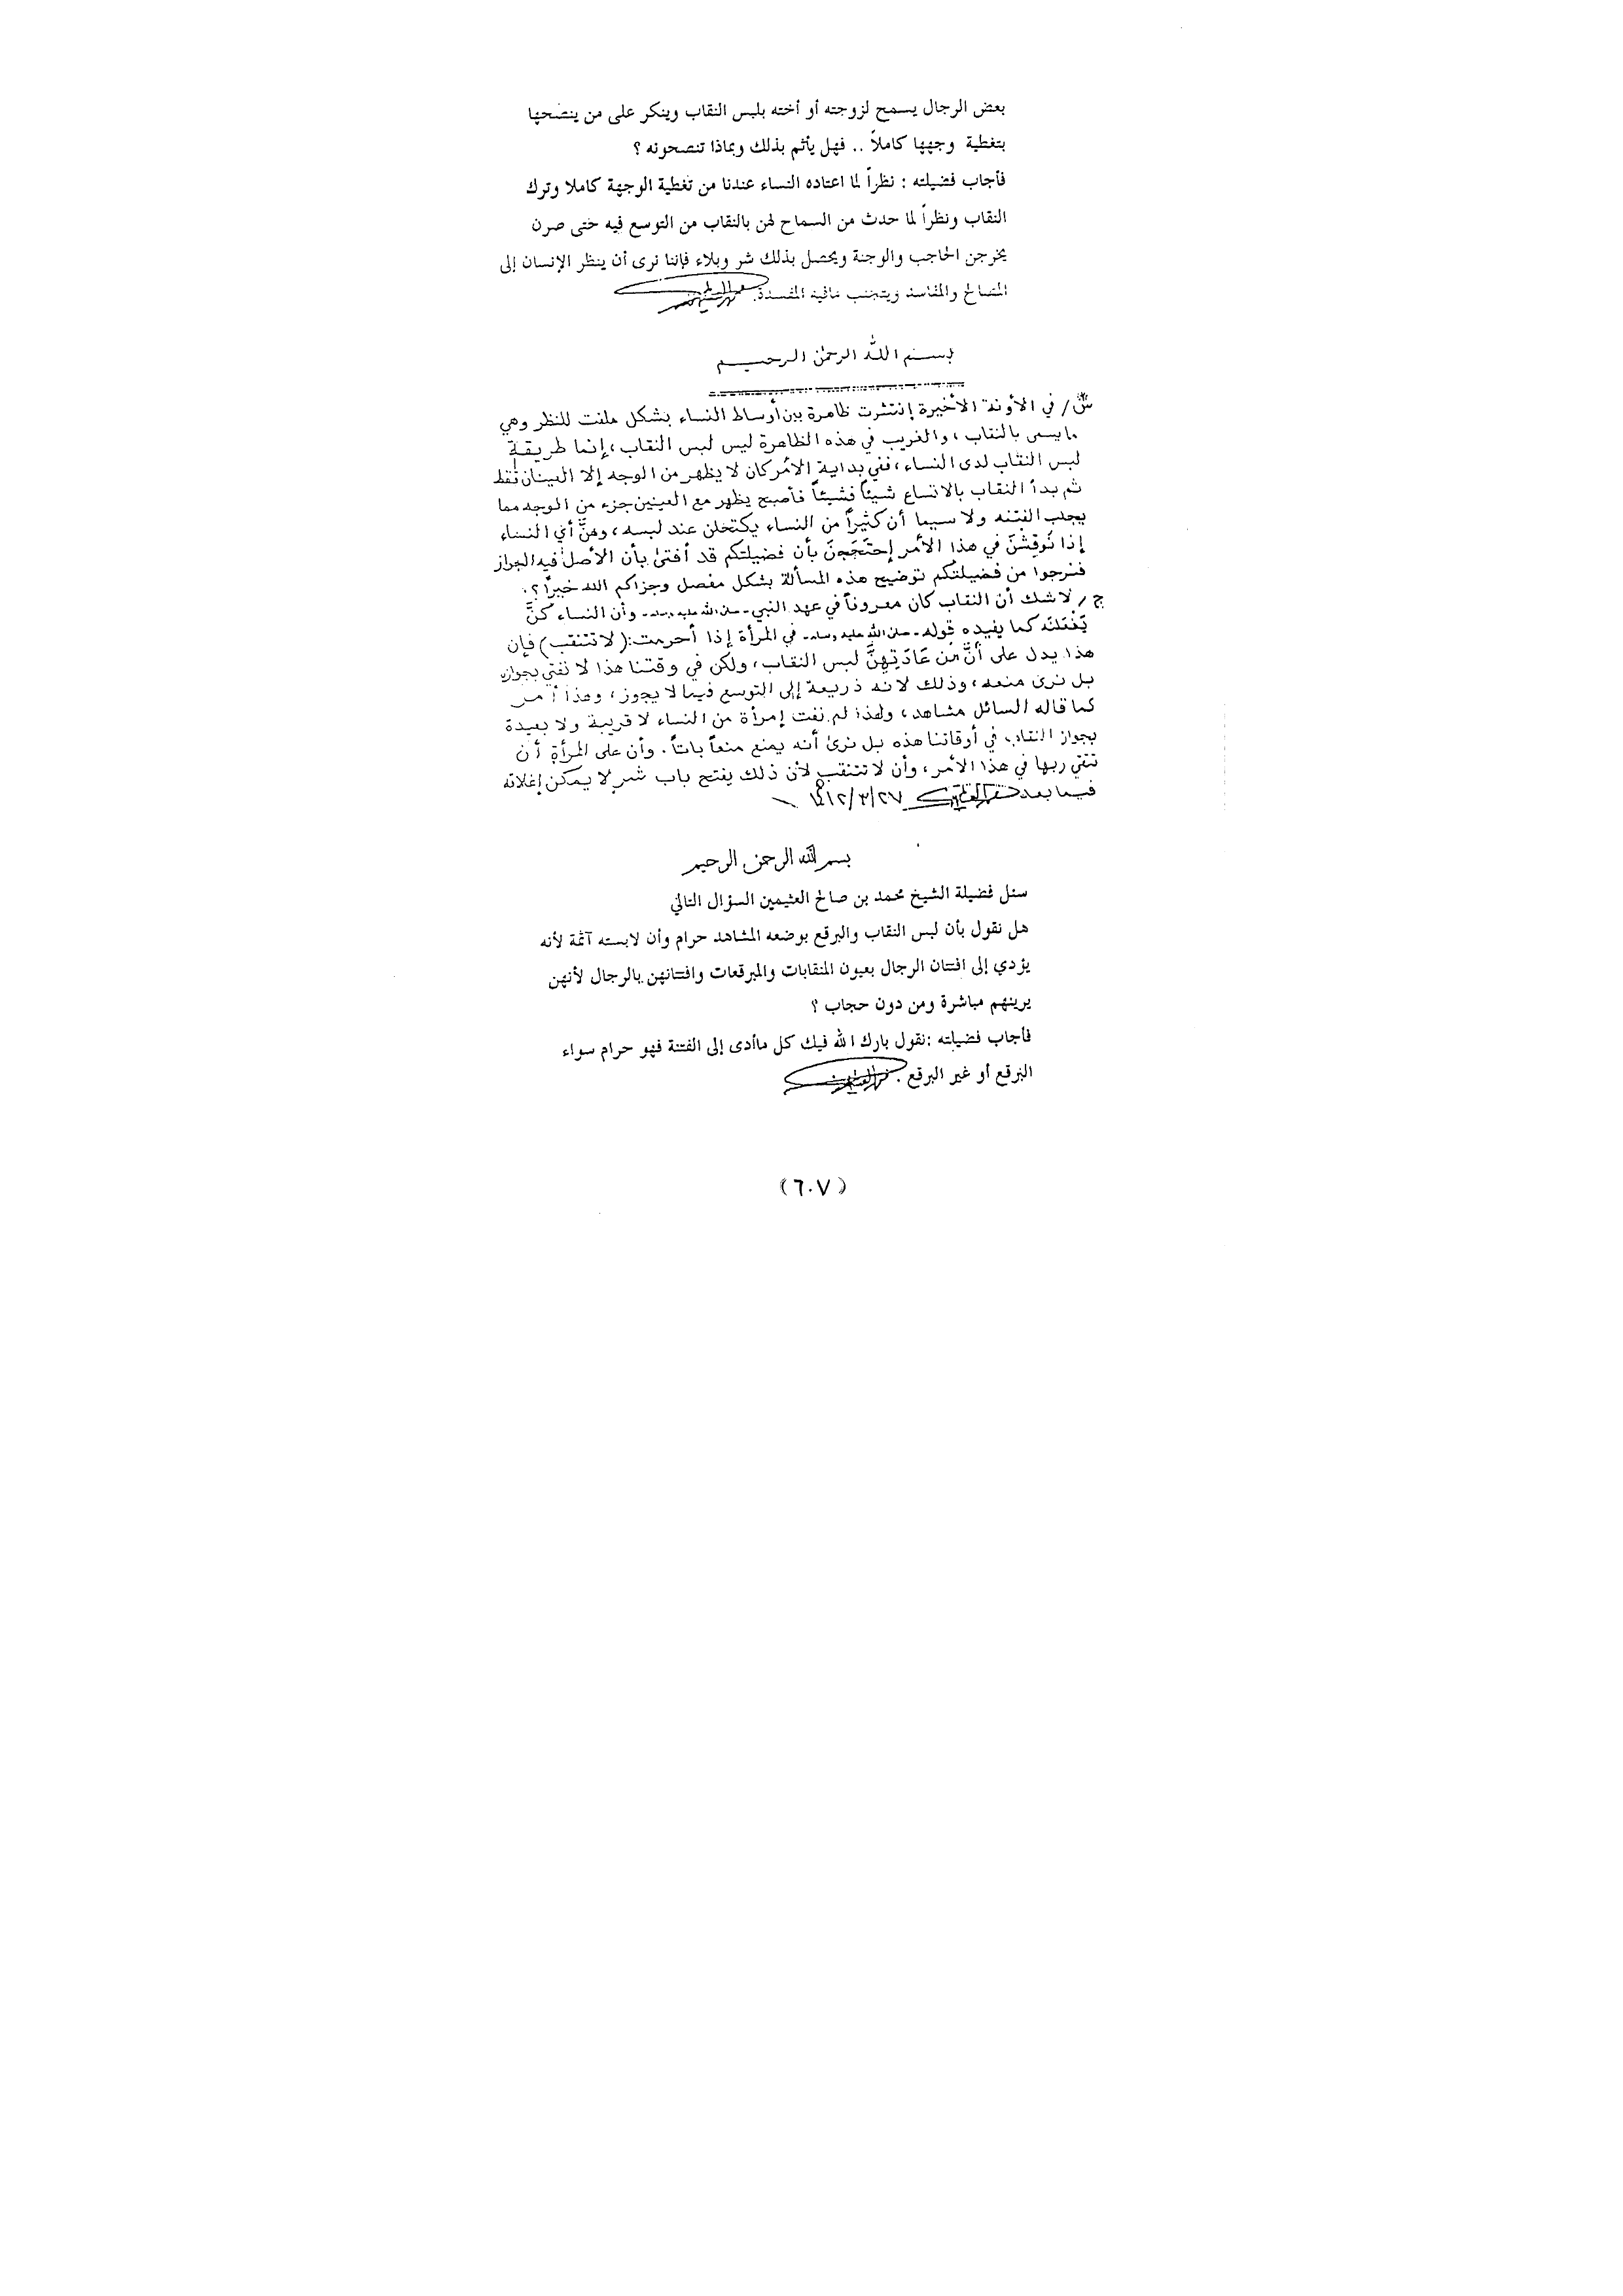 بعض الرجال يسمح لزوجته أو أخته بلبس النقاب وينكر على من ينصحها
بتغطية وجهها كاملاً .. فهل يأثم بذلك وبماذا تنصحونه ؟
فأجاب فضيلته : نظراً لما اعتاده النساء عندنا من تغطية الوجهة كاملا وترك
النقاب ونظراً لما حدث من السماح لهن بالنقاب من التوسع فيه حتى صرن
يخرجن الحاجب والوجنة ويحصل بذلك شر وبلاء فإننا نرى أن ينظر الإنسان إلى
المصالح والمفاسد ويتجنب مافيه المفسدة.
بسم الله الرحمن الرحيم
س/ في الأونة الأخيرة إنتشرت ظاهرة بين أوساط النساء بشكل ملفت للنظر وهي
ما يسمى بالنقاب ، والغريب في هذه الظاهرة ليس لبس النقاب ، إنما طريقة
لبس النقاب لدى النساء ، ففي بداية الأمر كان لا يظهر من الوجه إلا العينان فقط
ثم بدأ النقاب بالاتساع شيئاً فشيئاً فأصبح يظهر مع العينين جزء من الوجه مما
يجلب الفتنه ولا سيما أن كثيراً من النساء يكتحلن عند لبسه ، وهنَّ أي النساء
إذا نُوقِشْنَ في هذا الأمر إحتَجَجنَ بأن فضيلتكم قد أفتى بأن الأصل فيه الجواز
فنرجوا من فضيلتكم توضيح هذه المسألة بشكل مفصل وجزاكم الله خيراً ؟.
ج/ لاشك أن النقاب كان معروفاً في عهد النبي - صلى الله عليه وسلم - وأن النساء كُنَّ
يَفْعَلنَه كما يفيده قوله - صلى الله عليه وسلم - في المرأة إذا أحرمت : ( لا تنتقب ) فإن
هذا يدل على أنَّ من عَادَتِهِنَّ لبس النقاب ، ولكن في وقتنا هذا لا نفتي بجوازه
بل نرى منعه ، وذلك لانه ذريعة إلى التوسع فيما لا يجوز ، وهذا أمر
كما قاله السائل مشاهد ، ولهذا لم نفت إمرأة من النساء لا قريبة ولا بعيدة
بجواز النقاب في أوقاتنا هذه بل نرى أنه يمنع منعاً باتاً . وأن على المرأة أن
تتقي ربها في هذا الأمر ، وأن لا تتنقب لأن ذلك يفتح باب شر لا يمكن إغلاقه
فيما بعد ١٤١٢/٣/٢٧
بسم الله الرحمن الرحيم
سئل فضيلة الشيخ محمد بن صالح العثيمين السؤال التالي
هل نقول بأن لبس النقاب والبرقع بوضعه المشاهد حرام وأن لابسته آثمة لأنه
يؤدي إلى افتتان الرجال بعيون المنقابات والمبرقعات وافتتانهن بالرجال لأنهن
يرينهم مباشرة ومن دون حجاب ؟
فأجاب فضيلته :نقول بارك الله فيك كل ماأدى إلى الفتنة فهو حرام سواء
البرقع أو غير البرقع .
(٦٠٧)